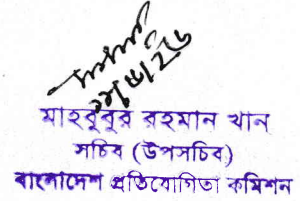 মাহবুবুর রহমান খান
সচিব (উপসচিব)
বাংলাদেশ প্রতিযোগিতা কমিশন